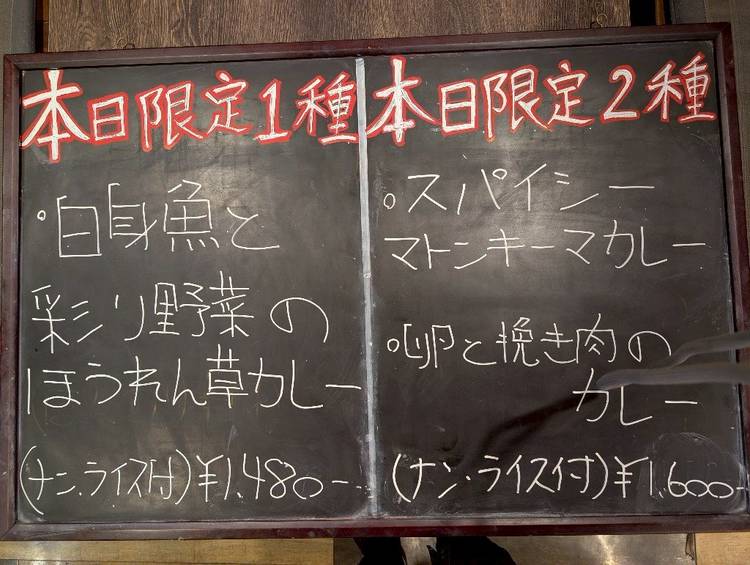 本日限定1種
・白身魚と
彩り野菜の
ほうれん草カレー
(ナン.ライス付)¥1.480-
本日限定2種
・スパイシー
マトンキーマカレー
・卵と挽き肉の
カレー
(ナン・ライス付)¥1.600-